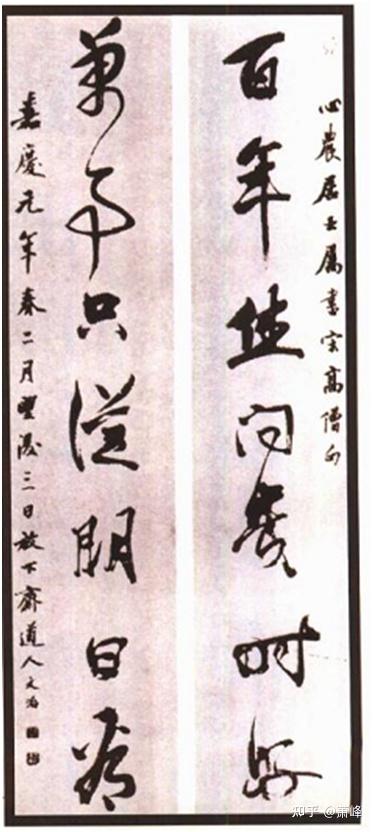 心農居士屬書宋高僧句
百年問時
萬事只從明日看
嘉慶元年春二月望後三日放下齋道人文治
知乎 @萧峰